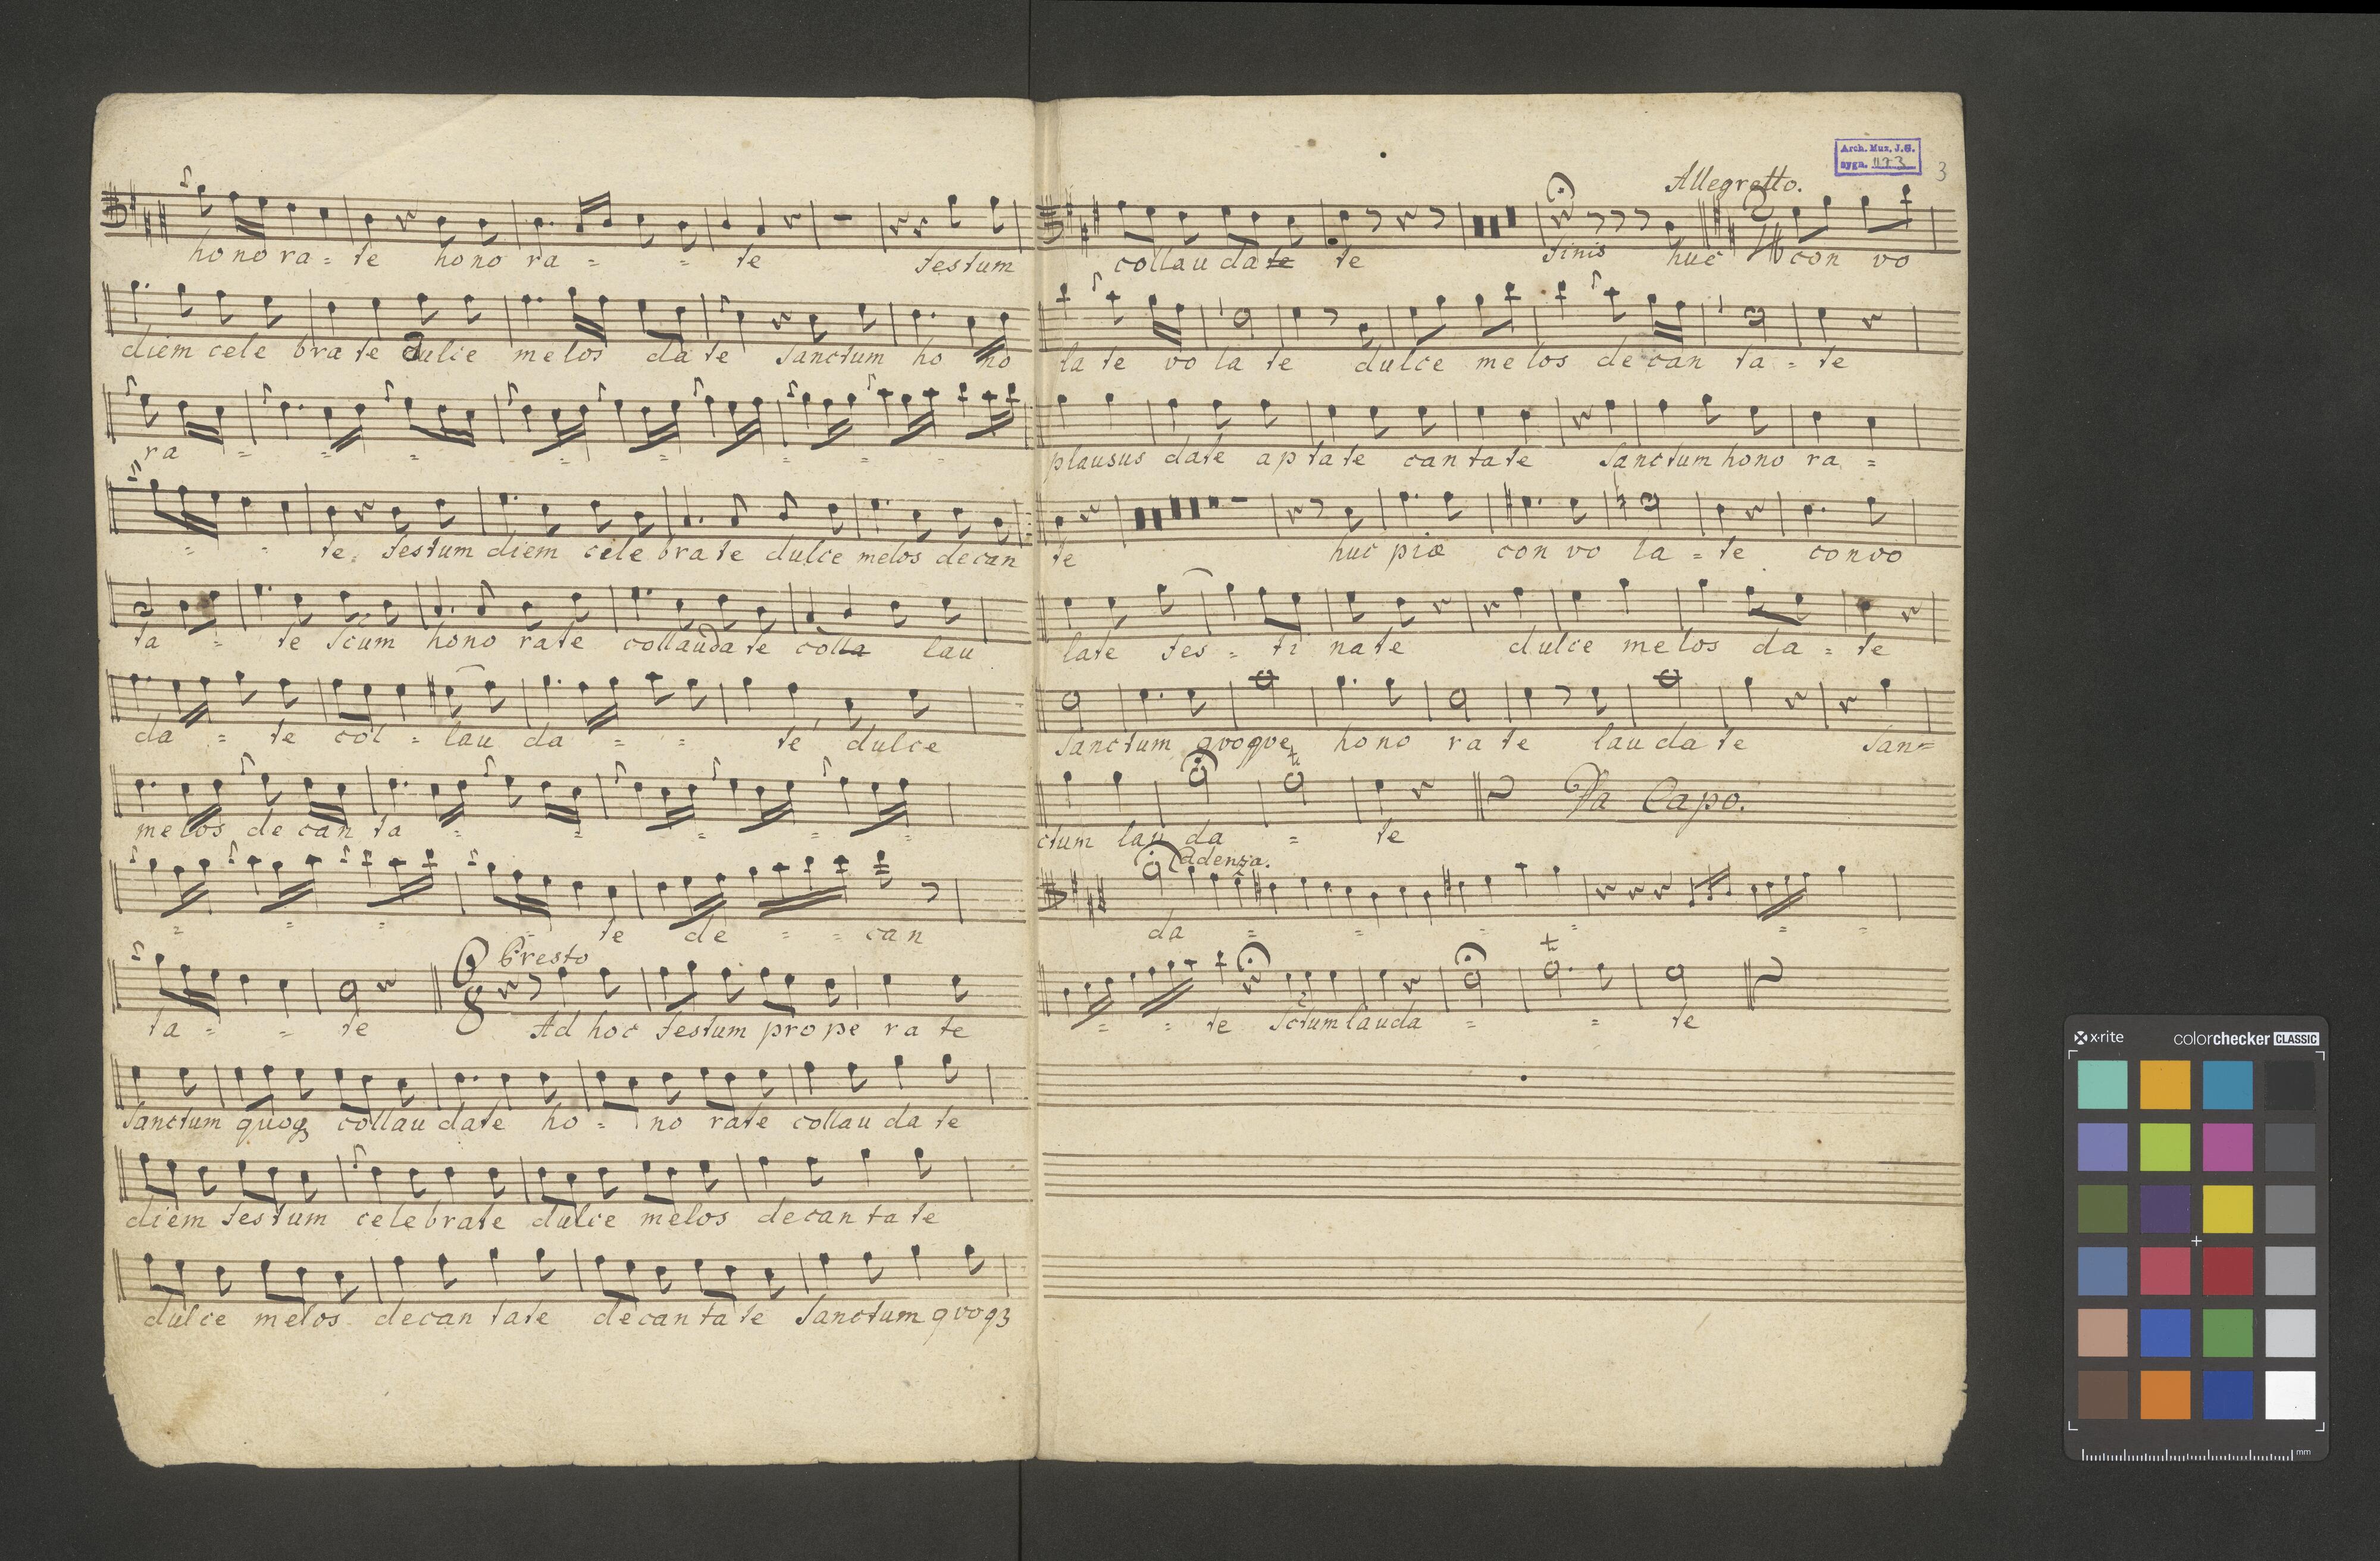 ho no ra = te ho no ra = = te festum
diem cele bra te dulce melos da te Sanctum ho no
ra = = = = = = = =
= = te festum diem cele bra te dulce melos decan
ta = te Sctum hono rate collaudate colla lau
da = te col = lau da = = te dulce
melos de can ta = = = = =
= = = = te de = = can
Presto
ta = = te 6 8 Ad hoc festum prope ra te
Sanctum quoqz collau date ho = no rate collau da te
diem festum celebrate dulce melos decan ta te
dulce melos decan tate decan ta te Sanctum qvoqz
Arch. Muz. J.G.
sygn. 1173
3
Allegretto.
collau da te te finis huc con vo
la te vo la te dulce me los de can ta = te
plausus date ap ta te can ta te Sanctum hono ra =
te huc piæ con vo la = te convo
late fes = ti nate dulce melos da = te
Sanctum qvoqve hono ra te lau da te San=
Da Capo.
ctum lau da = te
Cadenza.
da = = = = = =
= = te Sctum lauda = = te
x·rite colorchecker CLASSIC
mm